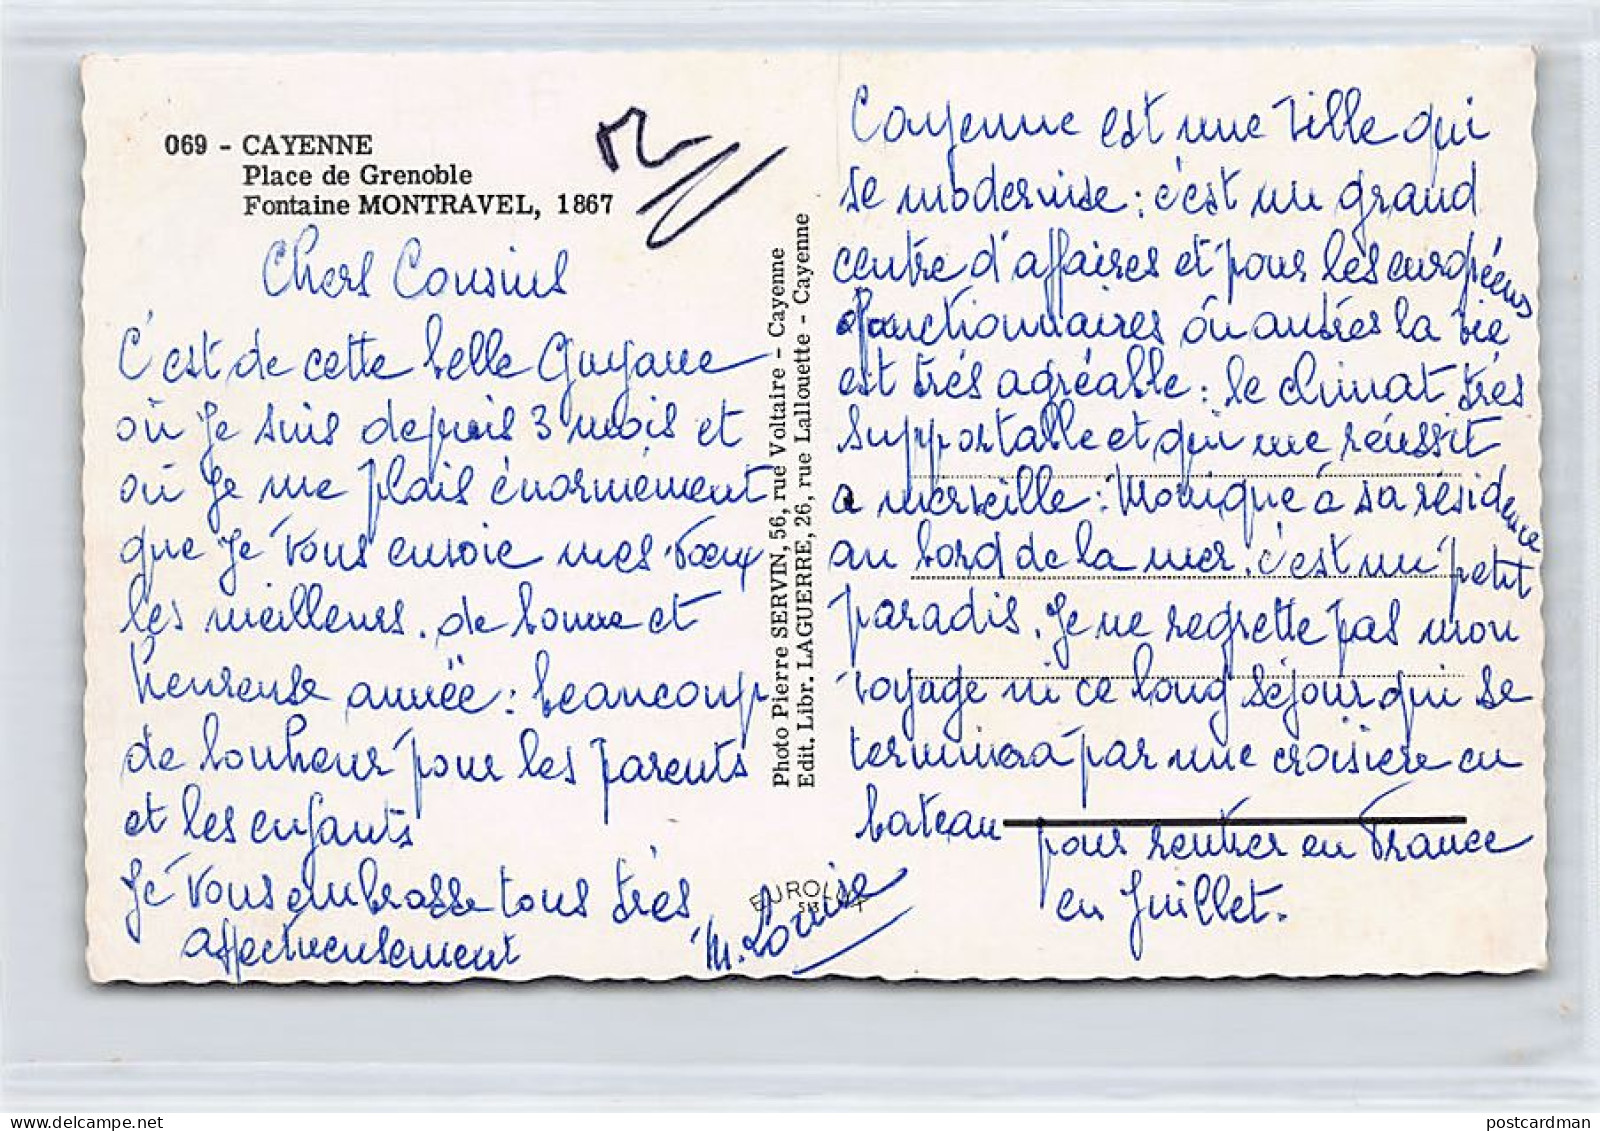 069 - CAYENNE
Place de Grenoble
Fontaine MONTRAVEL, 1867
Chers Cousins
C'est de cette belle Guyane
où je suis depuis 3 mois et
où je me plais énormément
que je vous envoie mes vœux
les meilleurs. de bonne et
heureuse année : beaucoup
de bonheur pour les parents
et les enfants
Je vous embrasse tous très
affectueusement
M. Louise
Photo Pierre SERVIN, 56, rue Voltaire - Cayenne
Edit. Libr. LAGUERRE, 26, rue Lallouette - Cayenne
Cayenne est une ville qui
se modernise : c'est un grand
centre d'affaires et pour les européens
fonctionnaires ou autres la vie
est très agréable : le climat très
supportable et qui me réussit
a merveille : Monique a sa résidence
au bord de la mer. c'est un petit
paradis. Je ne regrette pas mon
voyage ni ce long séjour qui se
terminera par une croisière en
bateau pour rentrer en France
en Juillet.
postcardman